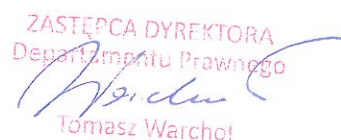 ZASTĘPCA DYREKTORA
Departamentu Prawnego
Tomasz Warchoł